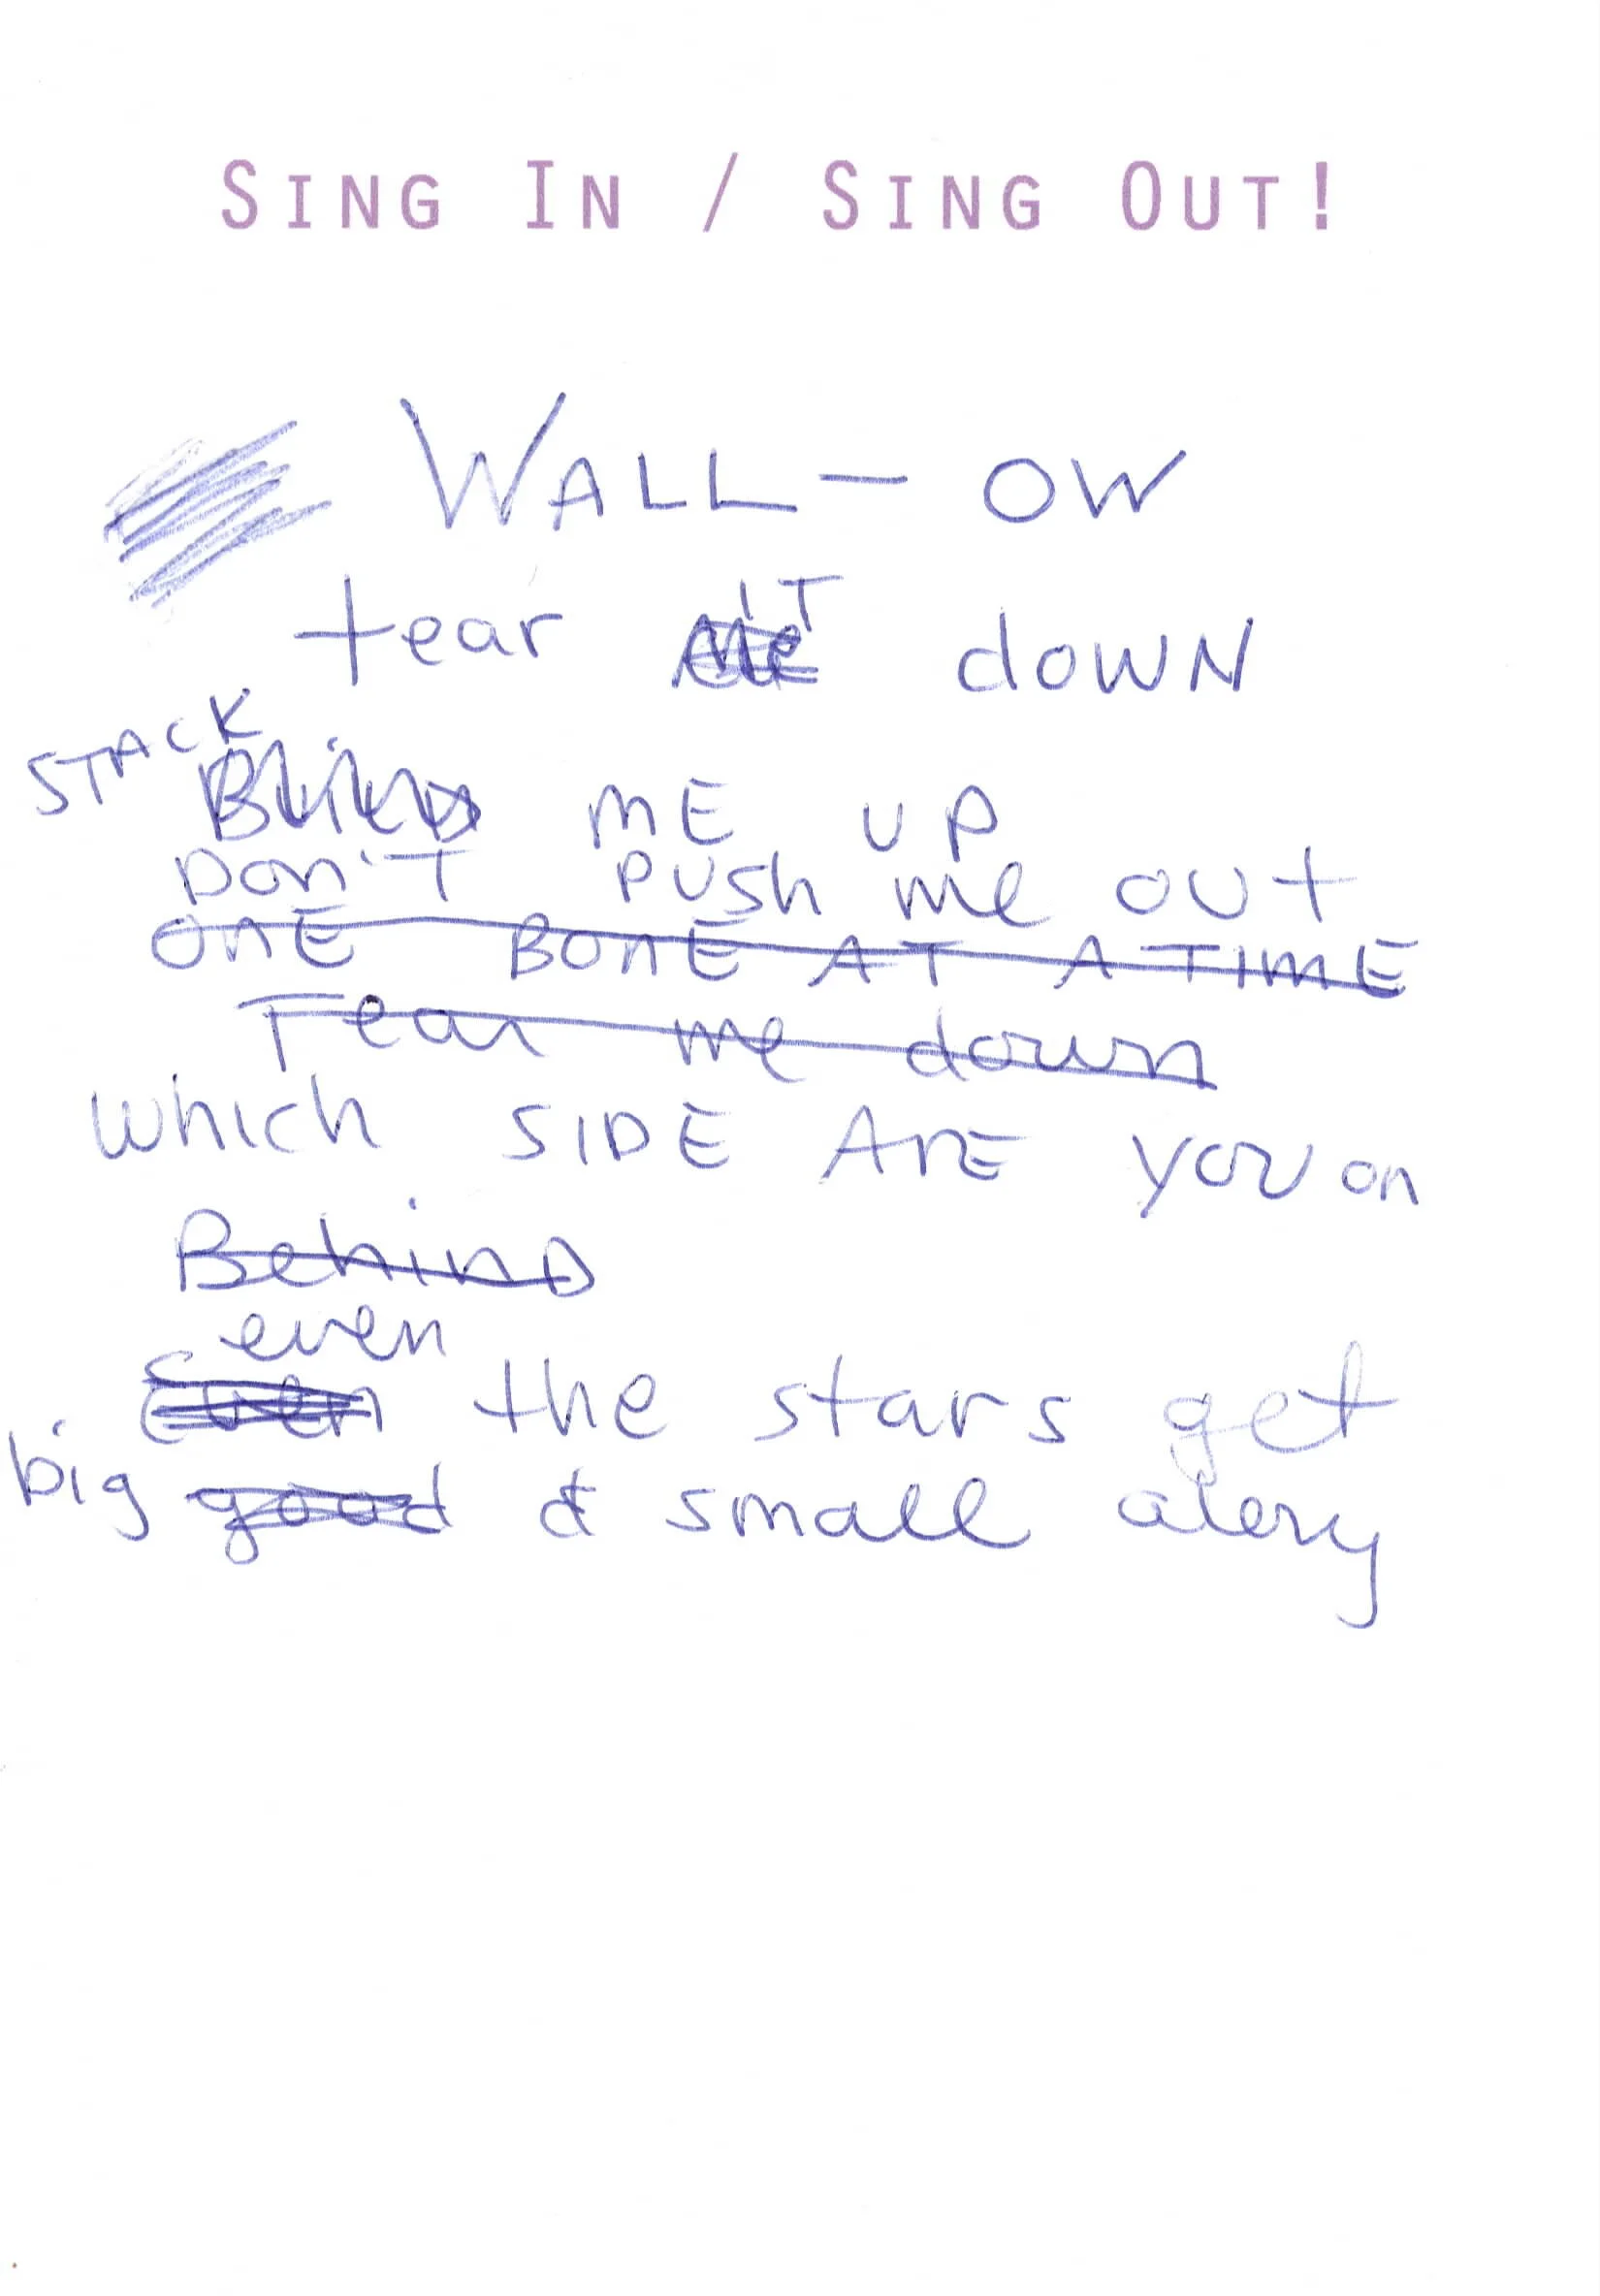 SING IN / SING OUT!
WALL — OW
tear IT down
STACK Build ME UP
DON'T PUSH me OUT
ONE BONE AT A TIME
Tear me down
Which SIDE ARE YOU on
Behind
even
Even the stars get
big good & small